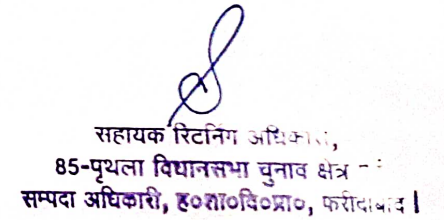 सहायक रिटर्निंग अधिकारी,
85-पृथला विधानसभा चुनाव क्षेत्र
सम्पदा अधिकारी, ह०शा०वि०प्रा०, फरीदाबाद।